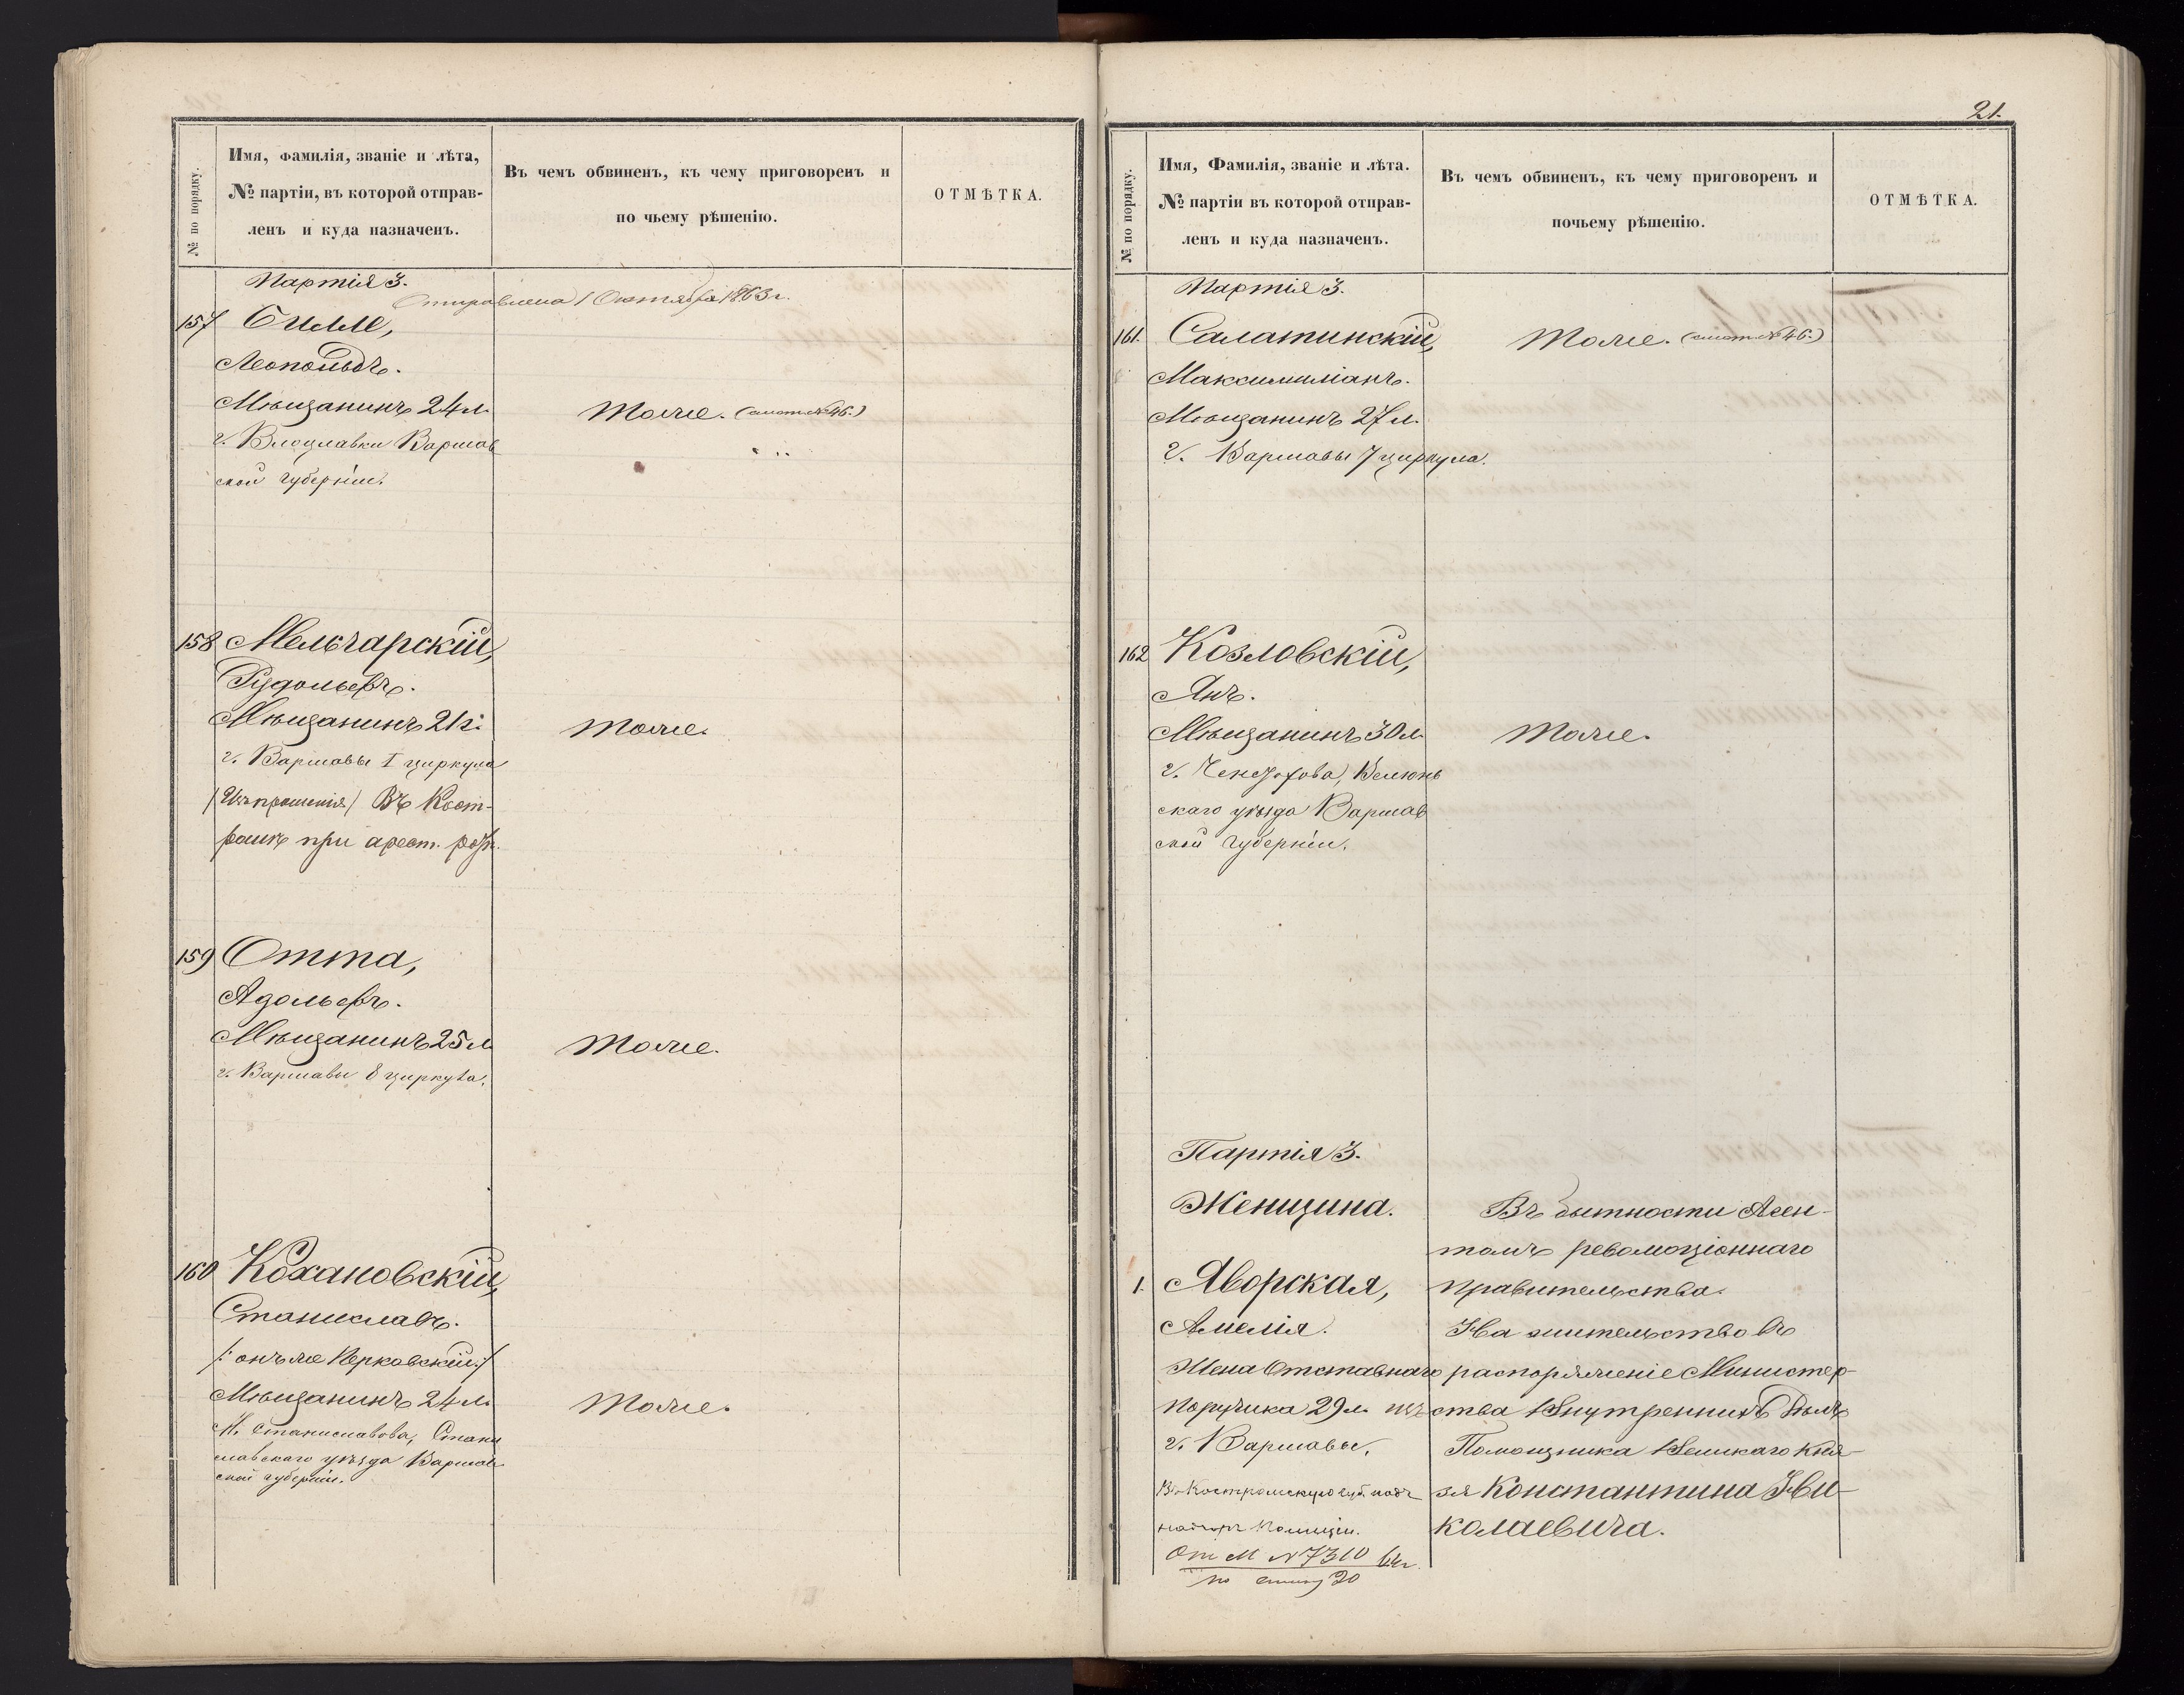 № по порядку.
Имя, фамилія, званіе и лѣта,
№ партіи, въ которой отправ-
ленъ и куда назначенъ.
Въ чемъ обвиненъ, къ чему приговоренъ и
по чьему рѣшенію.
ОТМѢТКА.
Партія 3.
Отправлена 1 Октября 1863 г.
157 Билле,
Леопольдъ.
Мѣщанинъ 24 л.
г. Влоцлавки Варшав
ской губерніи.
Тоже. (смот. № 46.)
158 Мельчарскій,
Рудольфъ.
Мѣщанинъ 21 г.
г. Варшавы I циркула
Въ Кост-
при арест. рот.
Тоже.
159 Отта,
Адольфъ.
Мѣщанинъ 25 л
г. Варшавы 8 циркула.
Тоже.
160 Кохановскій,
Станиславъ.
/: онъ же Перковскій :/
Мѣщанинъ 24 л.
М. Станиславова, Стани
славскаго уѣзда Варшав
ской губерніи.
Тоже.
21.
№ по порядку.
Имя, Фамилія, званіе и лѣта.
№ партіи въ которой отправ-
ленъ и куда назначенъ.
Въ чемъ обвиненъ, къ чему приговоренъ и
почьему рѣшенію.
ОТМѢТКА.
Партія 3.
161. Салатинскій,
Максимиліанъ.
Мѣщанинъ 27 л.
г. Варшавы 7 циркула.
Тоже. (смот. № 46.)
162 Козловскій,
Янъ.
Мѣщанинъ 30 л.
г. Ченстохова, Велюнь
скаго уѣзда Варшав
ской губерніи.
Тоже.
Партія 3.
Женщина.
1. Яворская,
Амелія.
Жена Отставнаго
Поручика 29 л. изъ
г. Варшавы.
Въ Костромскую губ. подъ
надзоръ Полиціи.
От М № 7310 64 г.
по списку 20
Въ бытности Аген-
томъ революціоннаго
правительства.
На жительство въ
распоряженіе Министер-
ства Внутреннихъ Дѣлъ
Помощника Великаго Кня-
зя Константина Ни-
колаевича.